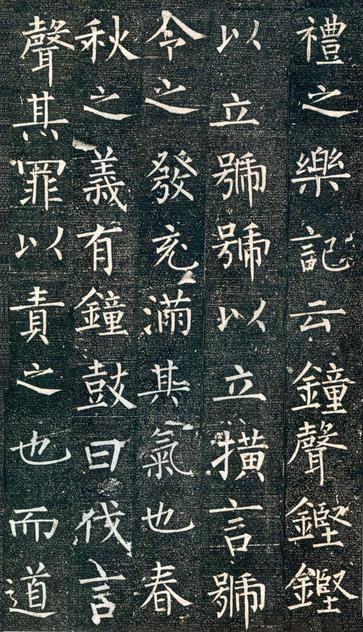 禮之樂記云鐘聲鏗鏗
以立號號以立橫言號
令之發充滿其氣也春
秋之義有鐘鼓曰伐言
聲其罪以責之也而道